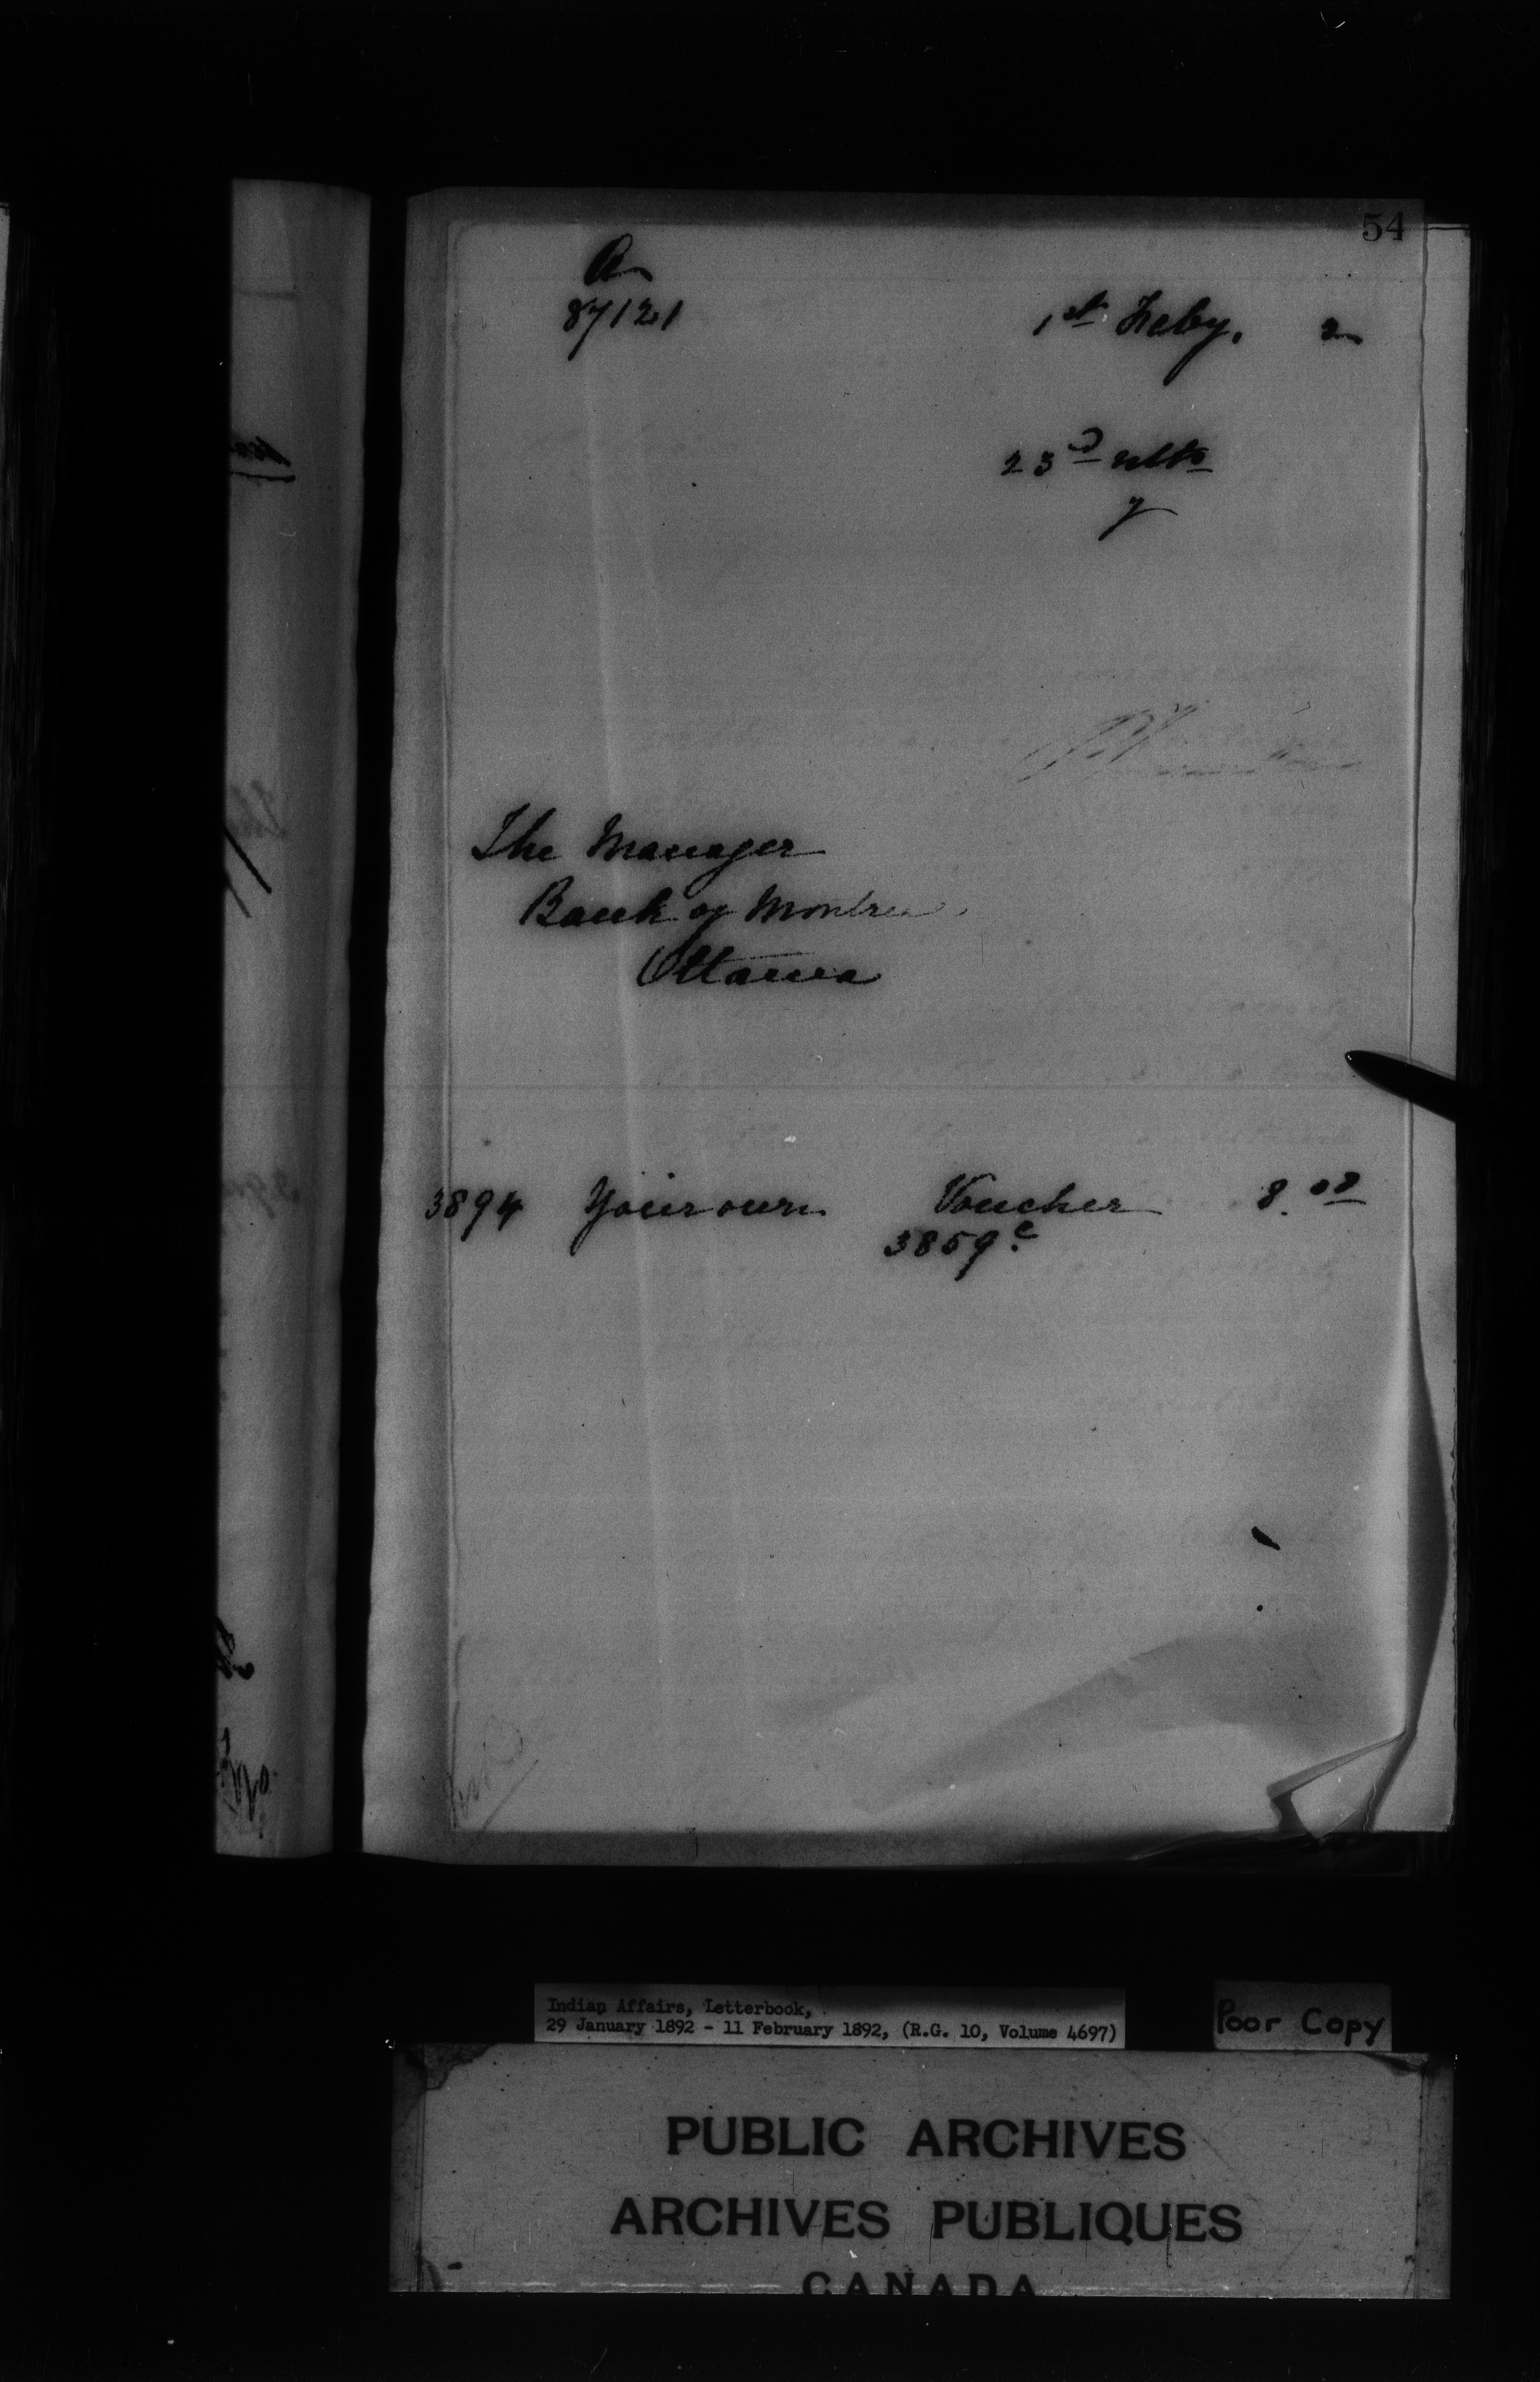 54
A
87121
1st Feby. 2
23D ulto
y
The Manager
Bank of Montrea
Ottawa
3894 Your own Voucher 8.08
3859c
Indian Affairs, Letterbook,
29 January 1892 - 11 February 1892, (R.G. 10, Volume 4697)
Poor Copy
PUBLIC ARCHIVES
ARCHIVES PUBLIQUES
CANADA